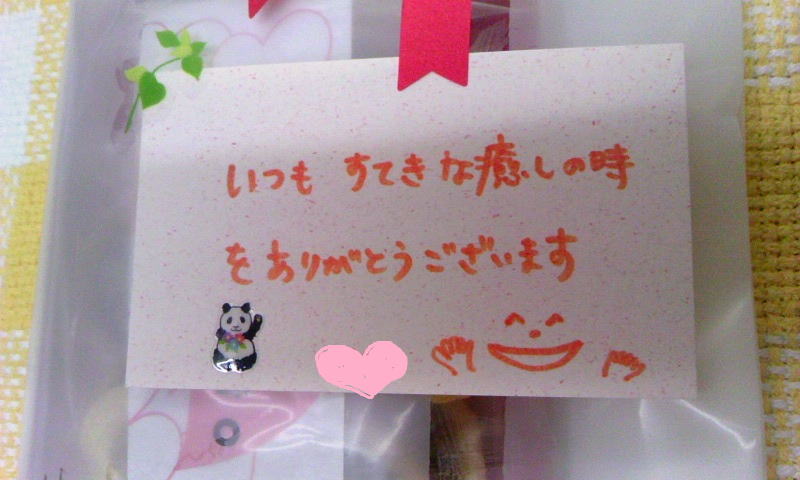 いつも すてきな癒しの時
をありがとうございます